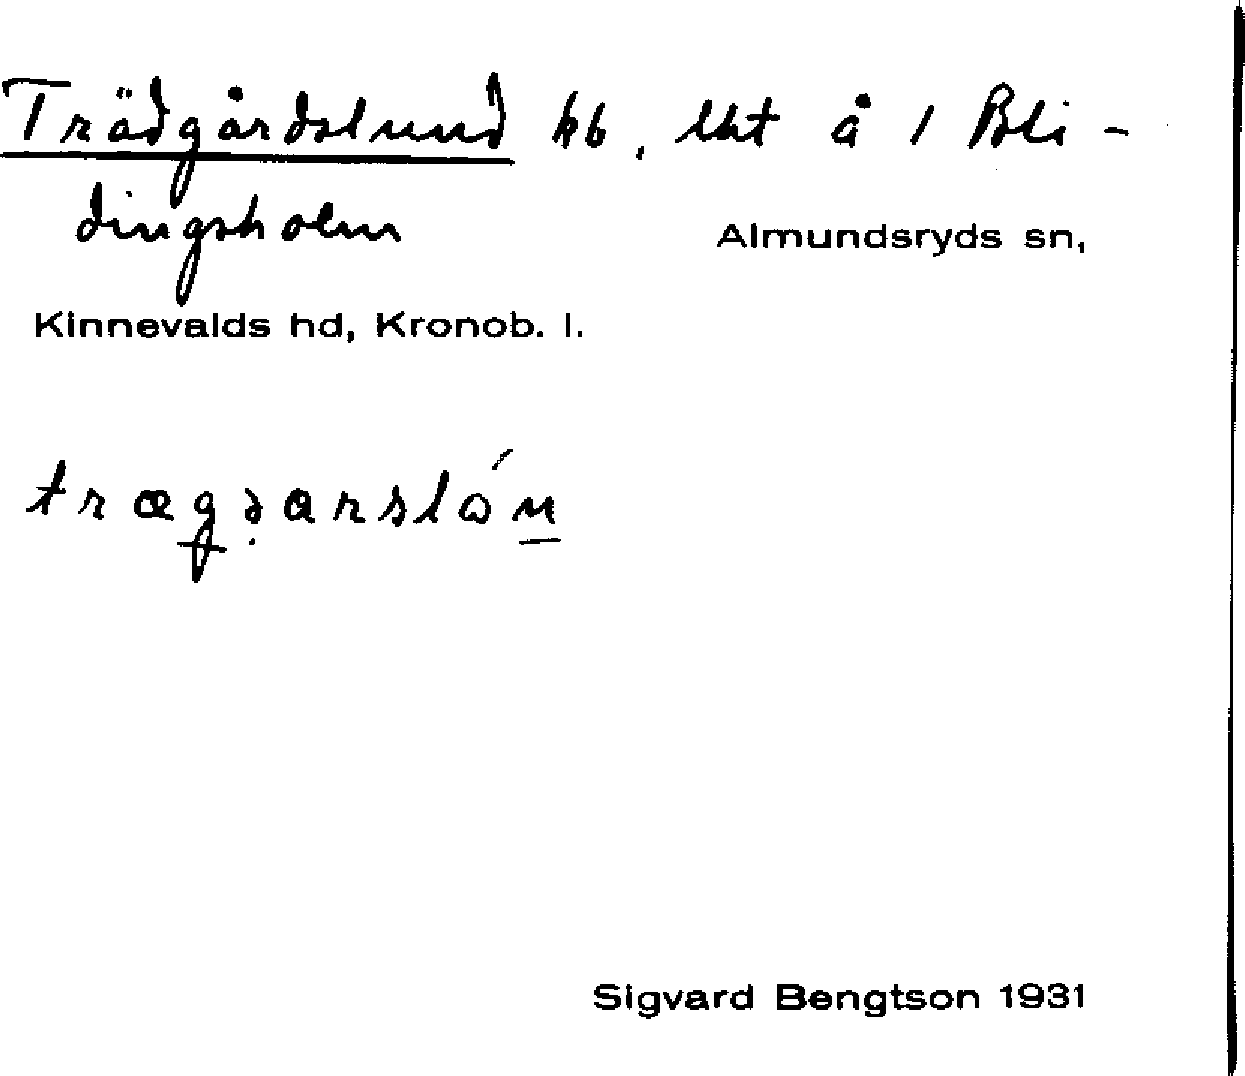 Trädgårdslund hb, lht å 1 Bli-
dingsholm
Almundsryds sn,
Kinnevalds hd, Kronob. l.
Sigvard Bengtson 1931